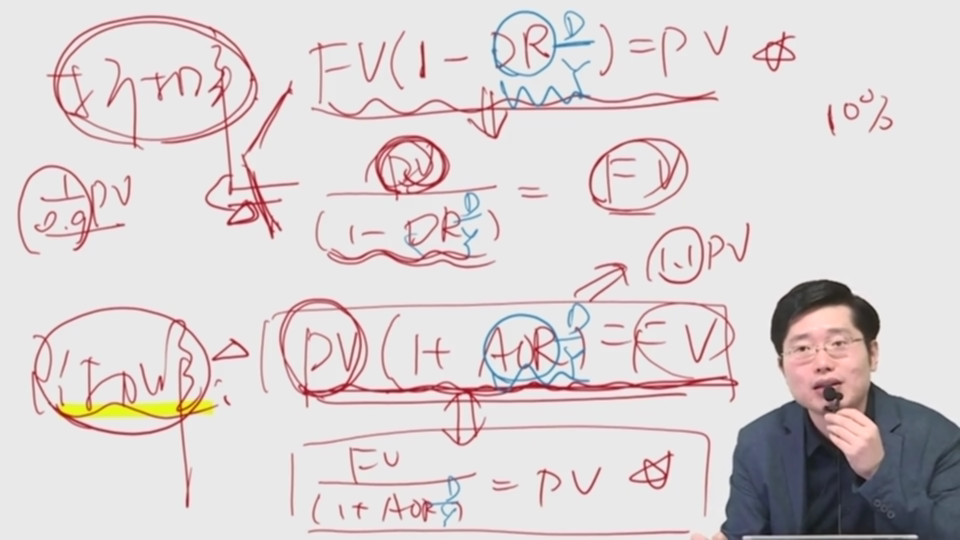 FV(1 - DR D/Y) = PV ☆
10%
1/0.9 PV
PV/(1 - DR D/Y) = FV
1.1 PV
PV(1 + AOR D/Y) = FV
FV/(1 + AOR D/Y) = PV ☆